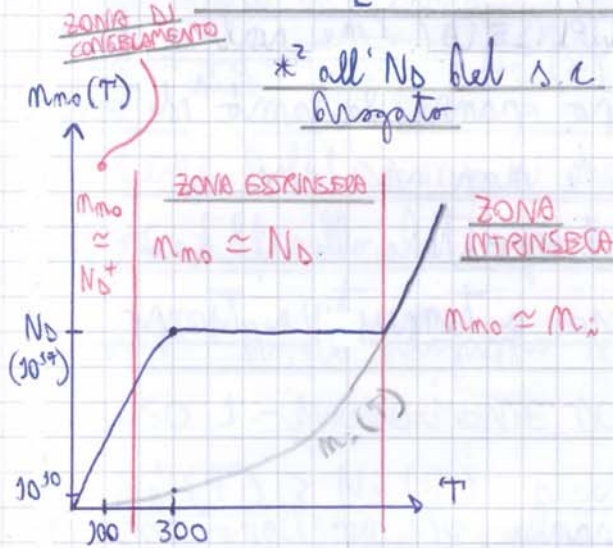 ZONA DI
CONGELAMENTO
*² all' ND del s.c.
drogato
nno(T)
nno
≃
ND⁺
ZONA ESTRINSECA
nno ≃ ND.
ZONA
INTRINSECA
nno ≃ ni
ND
(10¹⁷)
ni(T)
10¹⁰
100
300
T